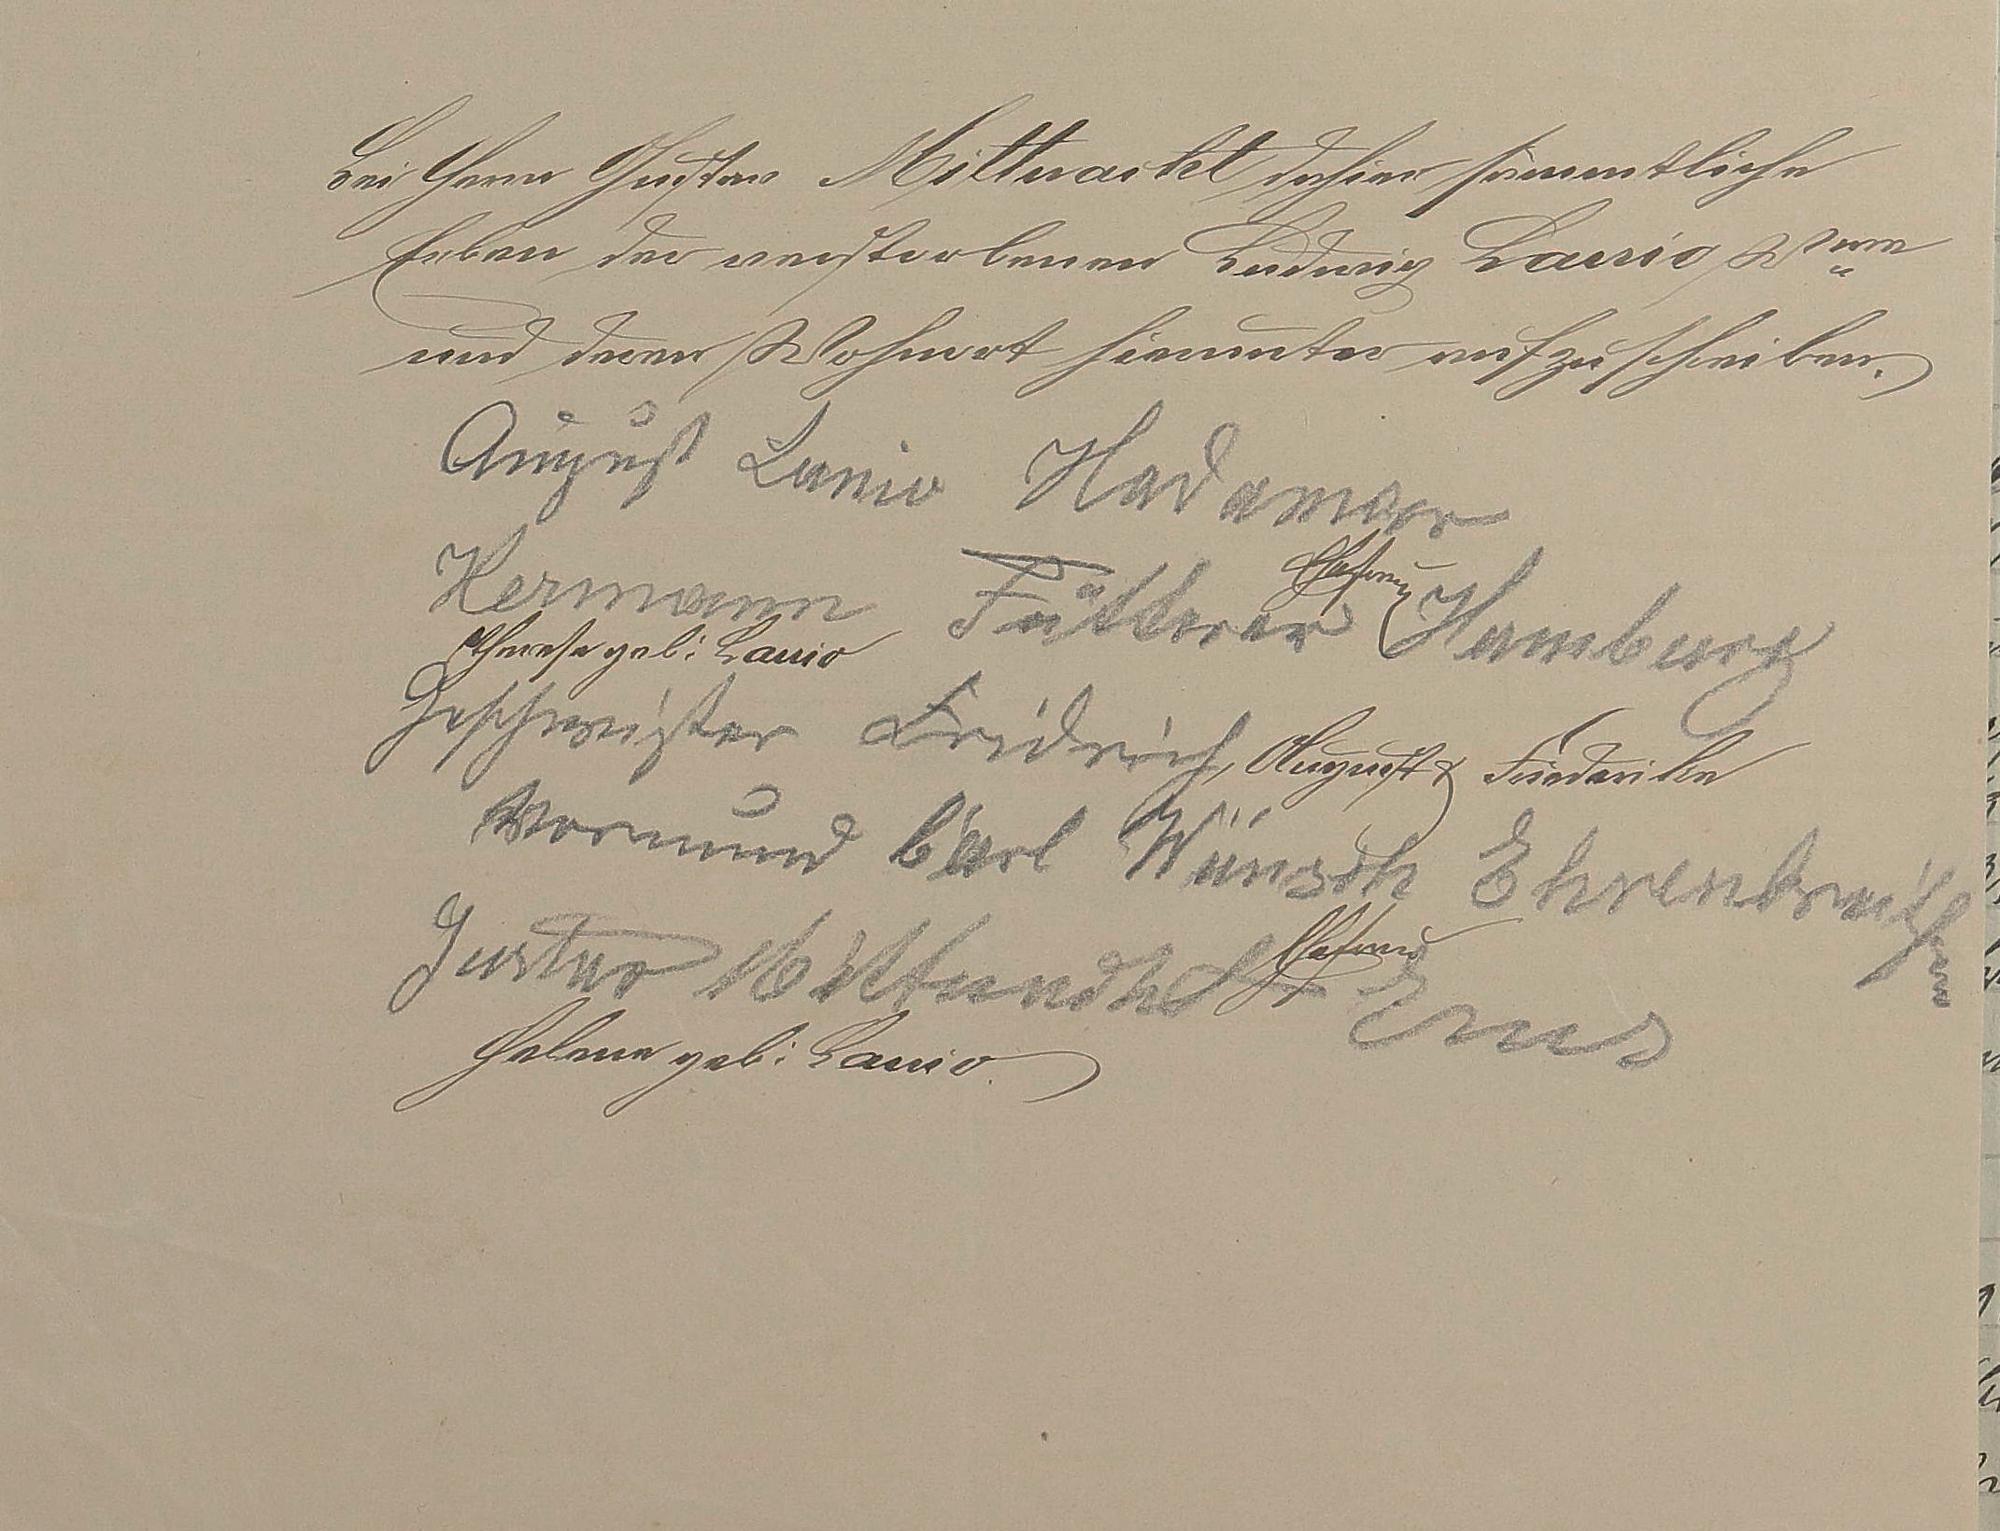 Bei Herrn Gustav Mittnacht dahier sämmtliche
Erben der verstorbenen Ludwig Lanio Wwe
und deren Wohnort hierunter aufzuschreiben.
August Lanio Hadamar
Hermann Fütterer Ehefrau Hamburg
Therese geb: Lanio
Geschwister Fridrich, August & Friederike
Vormund Carl Wünsch Ehrenbreitstein
Gustav Mittnacht Ehefrau Ems
Helene geb: Lanio.